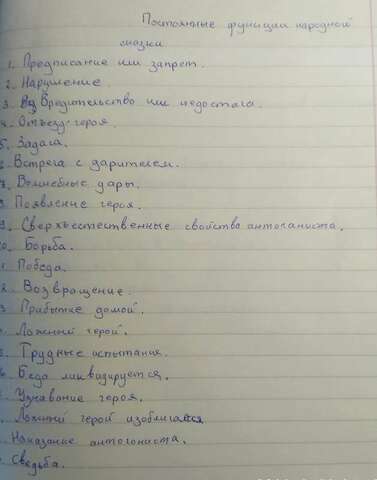 Постоянные функции народной
сказки
1. Предписание или запрет.
2. Нарушение.
3. Вредительство или недостача.
4. Отъезд героя.
5. Задача.
6 Встреча с дарителем.
7. Волшебные дары.
8 Появление героя.
9. Сверхъестественные свойства антогониста.
0. Борьба.
1. Победа.
2. Возвращение.
3. Прибытие домой.
. Ложный герой.
. Трудные испытания.
6. Беда ликвидируется.
. Узнавание героя.
. Ложный герой изобличается
. Наказание антогониста.
. Свадьба.